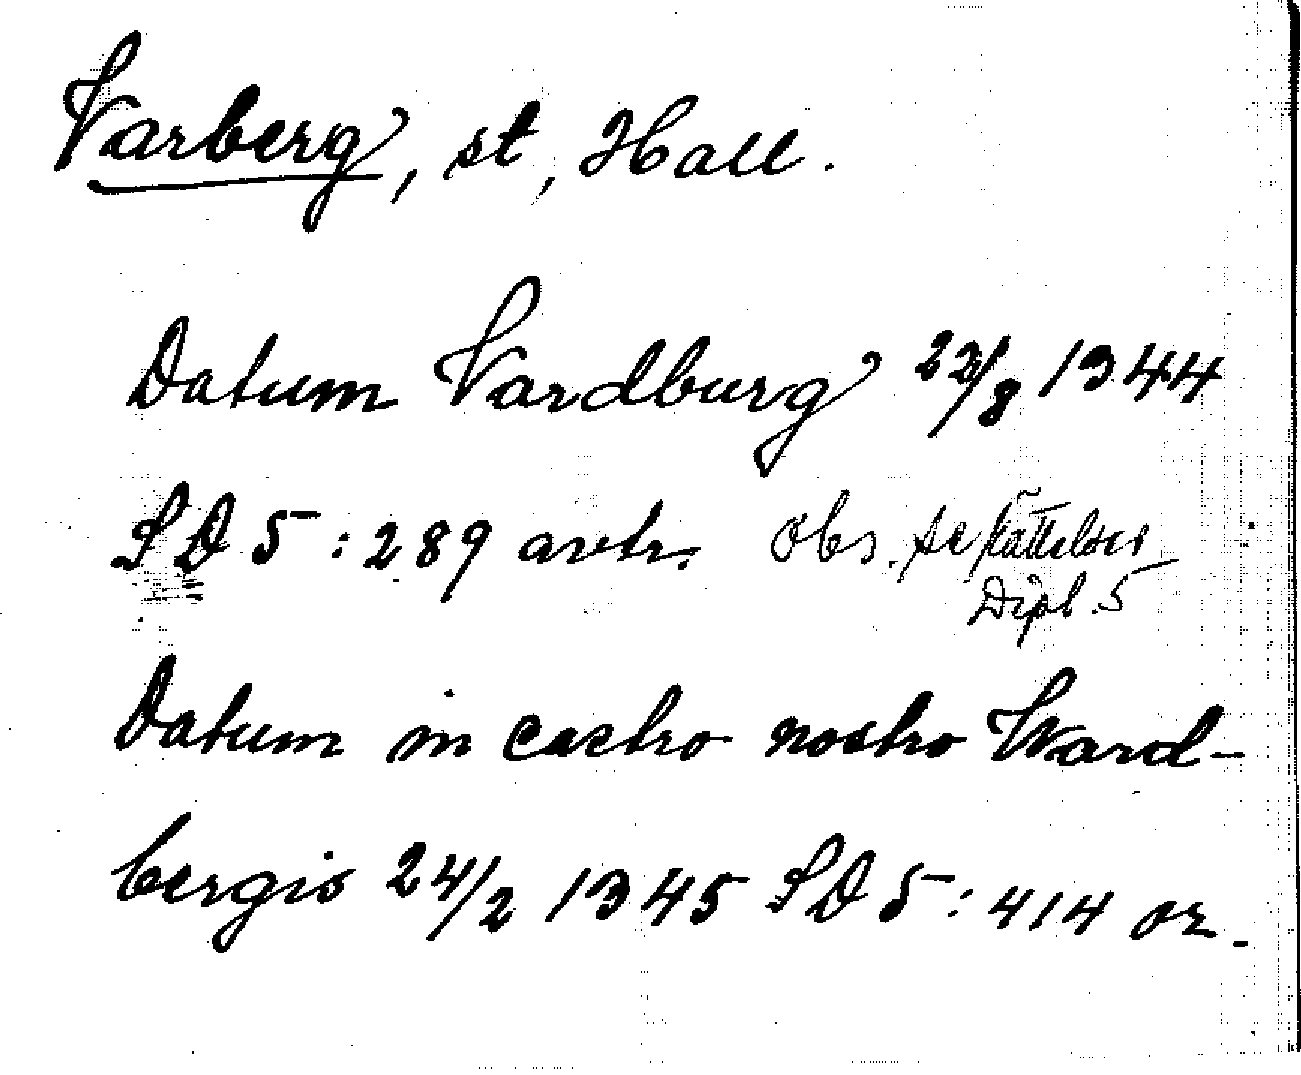 Varberg, st, Hall.
Datum Vardburg 22/8 1344
SD 5:289 avtr. Obs. se Rättelser
Dipl. 5
Datum in castro nostro Ward-
bergis 24/2 1345 SD 5:414 or.